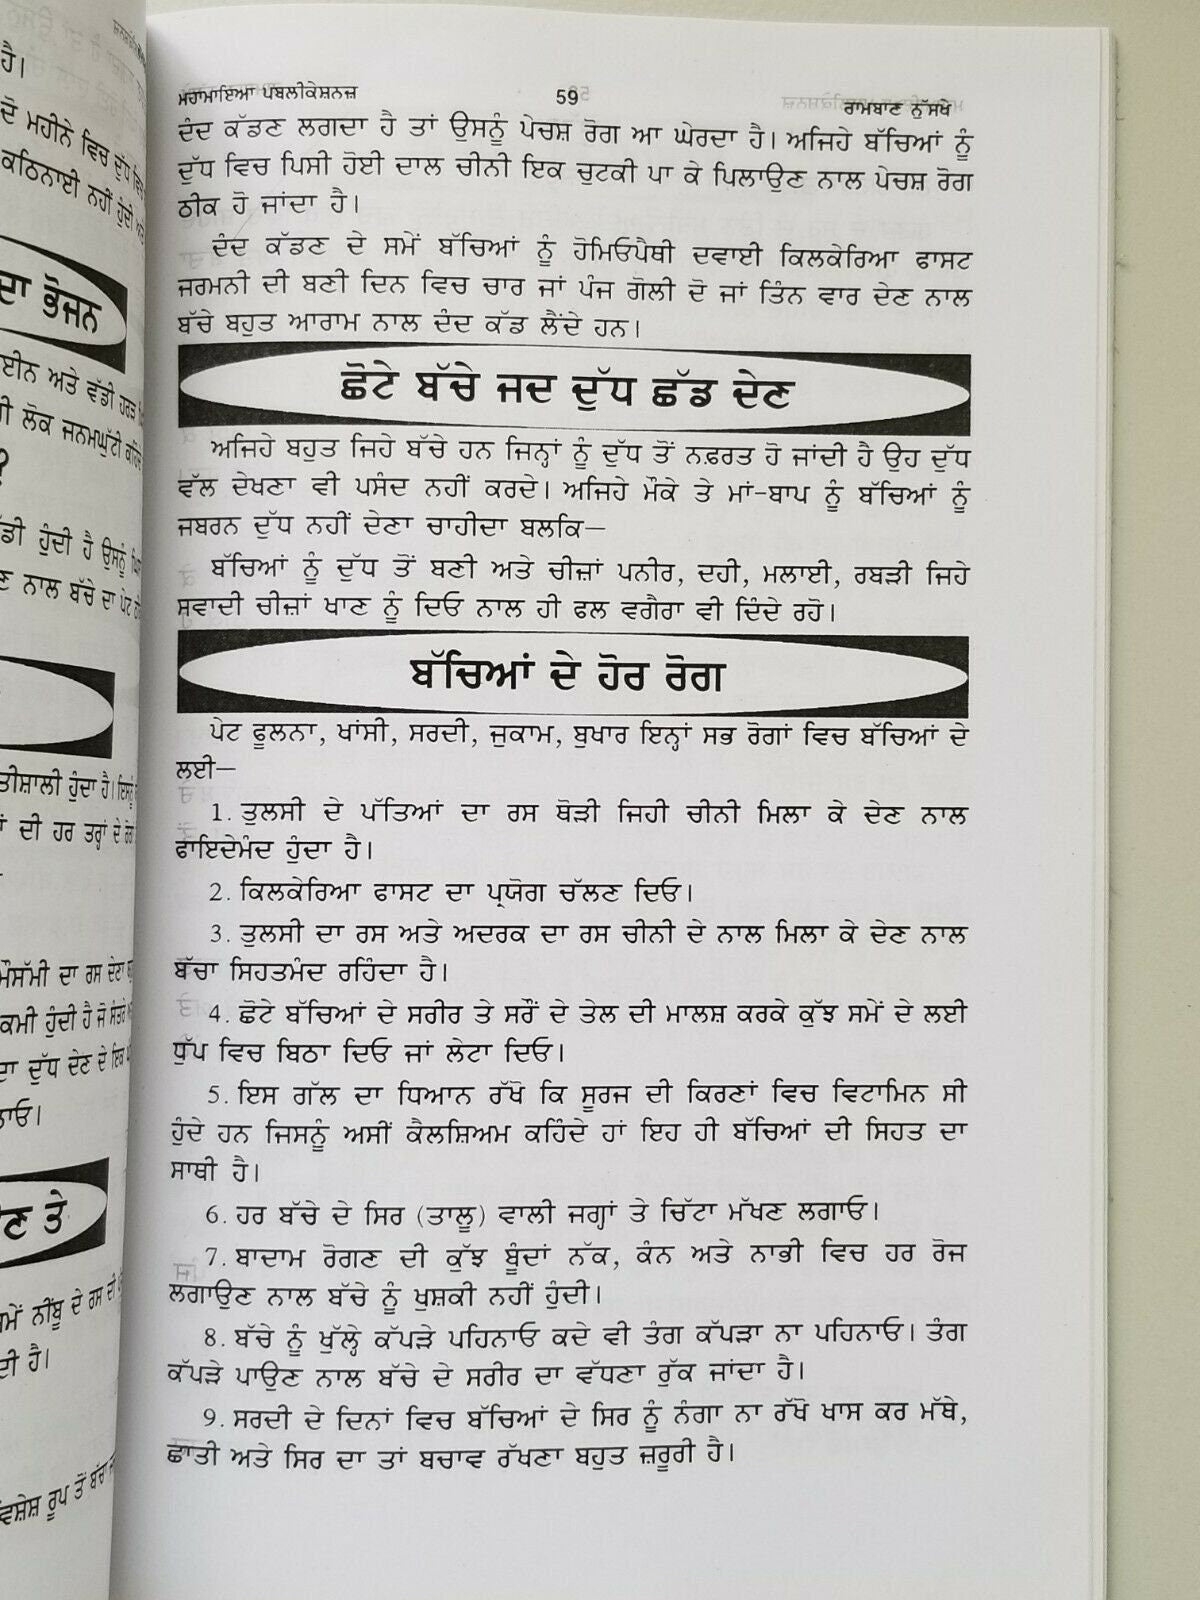 ਮਹਾਮਾਇਆ ਪਬਲੀਕੇਸ਼ਨਜ਼ 59 ਰਾਮਬਾਣ ਨੁੱਸਖੇ
ਦੰਦ ਕੱਡਣ ਲਗਦਾ ਹੈ ਤਾਂ ਉਸਨੂੰ ਪੇਚਸ਼ ਰੋਗ ਆ ਘੇਰਦਾ ਹੈ। ਅਜਿਹੇ ਬੱਚਿਆਂ ਨੂੰ
ਦੁੱਧ ਵਿਚ ਪਿਸੀ ਹੋਈ ਦਾਲ ਚੀਨੀ ਇਕ ਚੁਟਕੀ ਪਾ ਕੇ ਪਿਲਾਉਣ ਨਾਲ ਪੇਚਸ਼ ਰੋਗ
ਠੀਕ ਹੋ ਜਾਂਦਾ ਹੈ।
ਦੰਦ ਕੱਡਣ ਦੇ ਸਮੇਂ ਬੱਚਿਆਂ ਨੂੰ ਹੋਮਿਓਪੈਥੀ ਦਵਾਈ ਕਿਲਕੇਰਿਆ ਫਾਸਟ
ਜਰਮਨੀ ਦੀ ਬਣੀ ਦਿਨ ਵਿਚ ਚਾਰ ਜਾਂ ਪੰਜ ਗੋਲੀ ਦੋ ਜਾਂ ਤਿੰਨ ਵਾਰ ਦੇਣ ਨਾਲ
ਬੱਚੇ ਬਹੁਤ ਆਰਾਮ ਨਾਲ ਦੰਦ ਕੱਡ ਲੈਂਦੇ ਹਨ।
ਛੋਟੇ ਬੱਚੇ ਜਦ ਦੁੱਧ ਛੱਡ ਦੇਣ
ਅਜਿਹੇ ਬਹੁਤ ਜਿਹੇ ਬੱਚੇ ਹਨ ਜਿਨ੍ਹਾਂ ਨੂੰ ਦੁੱਧ ਤੋਂ ਨਫ਼ਰਤ ਹੋ ਜਾਂਦੀ ਹੈ ਉਹ ਦੁੱਧ
ਵੱਲ ਦੇਖਣਾ ਵੀ ਪਸੰਦ ਨਹੀਂ ਕਰਦੇ। ਅਜਿਹੇ ਮੌਕੇ ਤੇ ਮਾਂ-ਬਾਪ ਨੂੰ ਬੱਚਿਆਂ ਨੂੰ
ਜਬਰਨ ਦੁੱਧ ਨਹੀਂ ਦੇਣਾ ਚਾਹੀਦਾ ਬਲਕਿ—
ਬੱਚਿਆਂ ਨੂੰ ਦੁੱਧ ਤੋਂ ਬਣੀ ਅਤੇ ਚੀਜ਼ਾਂ ਪਨੀਰ, ਦਹੀ, ਮਲਾਈ, ਰਬੜੀ ਜਿਹੇ
ਸਵਾਦੀ ਚੀਜ਼ਾਂ ਖਾਣ ਨੂੰ ਦਿਓ ਨਾਲ ਹੀ ਫਲ ਵਗੈਰਾ ਵੀ ਦਿੰਦੇ ਰਹੋ।
ਬੱਚਿਆਂ ਦੇ ਹੋਰ ਰੋਗ
ਪੇਟ ਫੂਲਨਾ, ਖਾਂਸੀ, ਸਰਦੀ, ਜੁਕਾਮ, ਬੁਖਾਰ ਇਨ੍ਹਾਂ ਸਭ ਰੋਗਾਂ ਵਿਚ ਬੱਚਿਆਂ ਦੇ
ਲਈ—
1. ਤੁਲਸੀ ਦੇ ਪੱਤਿਆਂ ਦਾ ਰਸ ਥੋੜੀ ਜਿਹੀ ਚੀਨੀ ਮਿਲਾ ਕੇ ਦੇਣ ਨਾਲ
ਫਾਇਦੇਮੰਦ ਹੁੰਦਾ ਹੈ।
2. ਕਿਲਕੇਰਿਆ ਫਾਸਟ ਦਾ ਪ੍ਰਯੋਗ ਚੱਲਣ ਦਿਓ।
3. ਤੁਲਸੀ ਦਾ ਰਸ ਅਤੇ ਅਦਰਕ ਦਾ ਰਸ ਚੀਨੀ ਦੇ ਨਾਲ ਮਿਲਾ ਕੇ ਦੇਣ ਨਾਲ
ਬੱਚਾ ਸਿਹਤਮੰਦ ਰਹਿੰਦਾ ਹੈ।
4. ਛੋਟੇ ਬੱਚਿਆਂ ਦੇ ਸਰੀਰ ਤੇ ਸਰੌਂ ਦੇ ਤੇਲ ਦੀ ਮਾਲਸ਼ ਕਰਕੇ ਕੁੱਝ ਸਮੇਂ ਦੇ ਲਈ
ਧੁੱਪ ਵਿਚ ਬਿਠਾ ਦਿਓ ਜਾਂ ਲੇਟਾ ਦਿਓ।
5. ਇਸ ਗੱਲ ਦਾ ਧਿਆਨ ਰੱਖੋ ਕਿ ਸੂਰਜ ਦੀ ਕਿਰਣਾਂ ਵਿਚ ਵਿਟਾਮਿਨ ਸੀ
ਹੁੰਦੇ ਹਨ ਜਿਸਨੂੰ ਅਸੀਂ ਕੈਲਸ਼ਿਅਮ ਕਹਿੰਦੇ ਹਾਂ ਇਹ ਹੀ ਬੱਚਿਆਂ ਦੀ ਸਿਹਤ ਦਾ
ਸਾਥੀ ਹੈ।
6. ਹਰ ਬੱਚੇ ਦੇ ਸਿਰ (ਤਾਲੂ) ਵਾਲੀ ਜਗ੍ਹਾਂ ਤੇ ਚਿੱਟਾ ਮੱਖਣ ਲਗਾਓ।
7. ਬਾਦਾਮ ਰੋਗਣ ਦੀ ਕੁੱਝ ਬੂੰਦਾਂ ਨੱਕ, ਕੰਨ ਅਤੇ ਨਾਭੀ ਵਿਚ ਹਰ ਰੋਜ
ਲਗਾਉਣ ਨਾਲ ਬੱਚੇ ਨੂੰ ਖੁਸ਼ਕੀ ਨਹੀਂ ਹੁੰਦੀ।
8. ਬੱਚੇ ਨੂੰ ਖੁੱਲ੍ਹੇ ਕੱਪੜੇ ਪਹਿਨਾਓ ਕਦੇ ਵੀ ਤੰਗ ਕੱਪੜਾ ਨਾ ਪਹਿਨਾਓ। ਤੰਗ
ਕੱਪੜੇ ਪਾਉਣ ਨਾਲ ਬੱਚੇ ਦੇ ਸਰੀਰ ਦਾ ਵੱਧਣਾ ਰੁੱਕ ਜਾਂਦਾ ਹੈ।
9. ਸਰਦੀ ਦੇ ਦਿਨਾਂ ਵਿਚ ਬੱਚਿਆਂ ਦੇ ਸਿਰ ਨੂੰ ਨੰਗਾ ਨਾ ਰੱਖੋ ਖਾਸ ਕਰ ਮੱਥੇ,
ਛਾਤੀ ਅਤੇ ਸਿਰ ਦਾ ਤਾਂ ਬਚਾਵ ਰੱਖਣਾ ਬਹੁਤ ਜ਼ਰੂਰੀ ਹੈ।